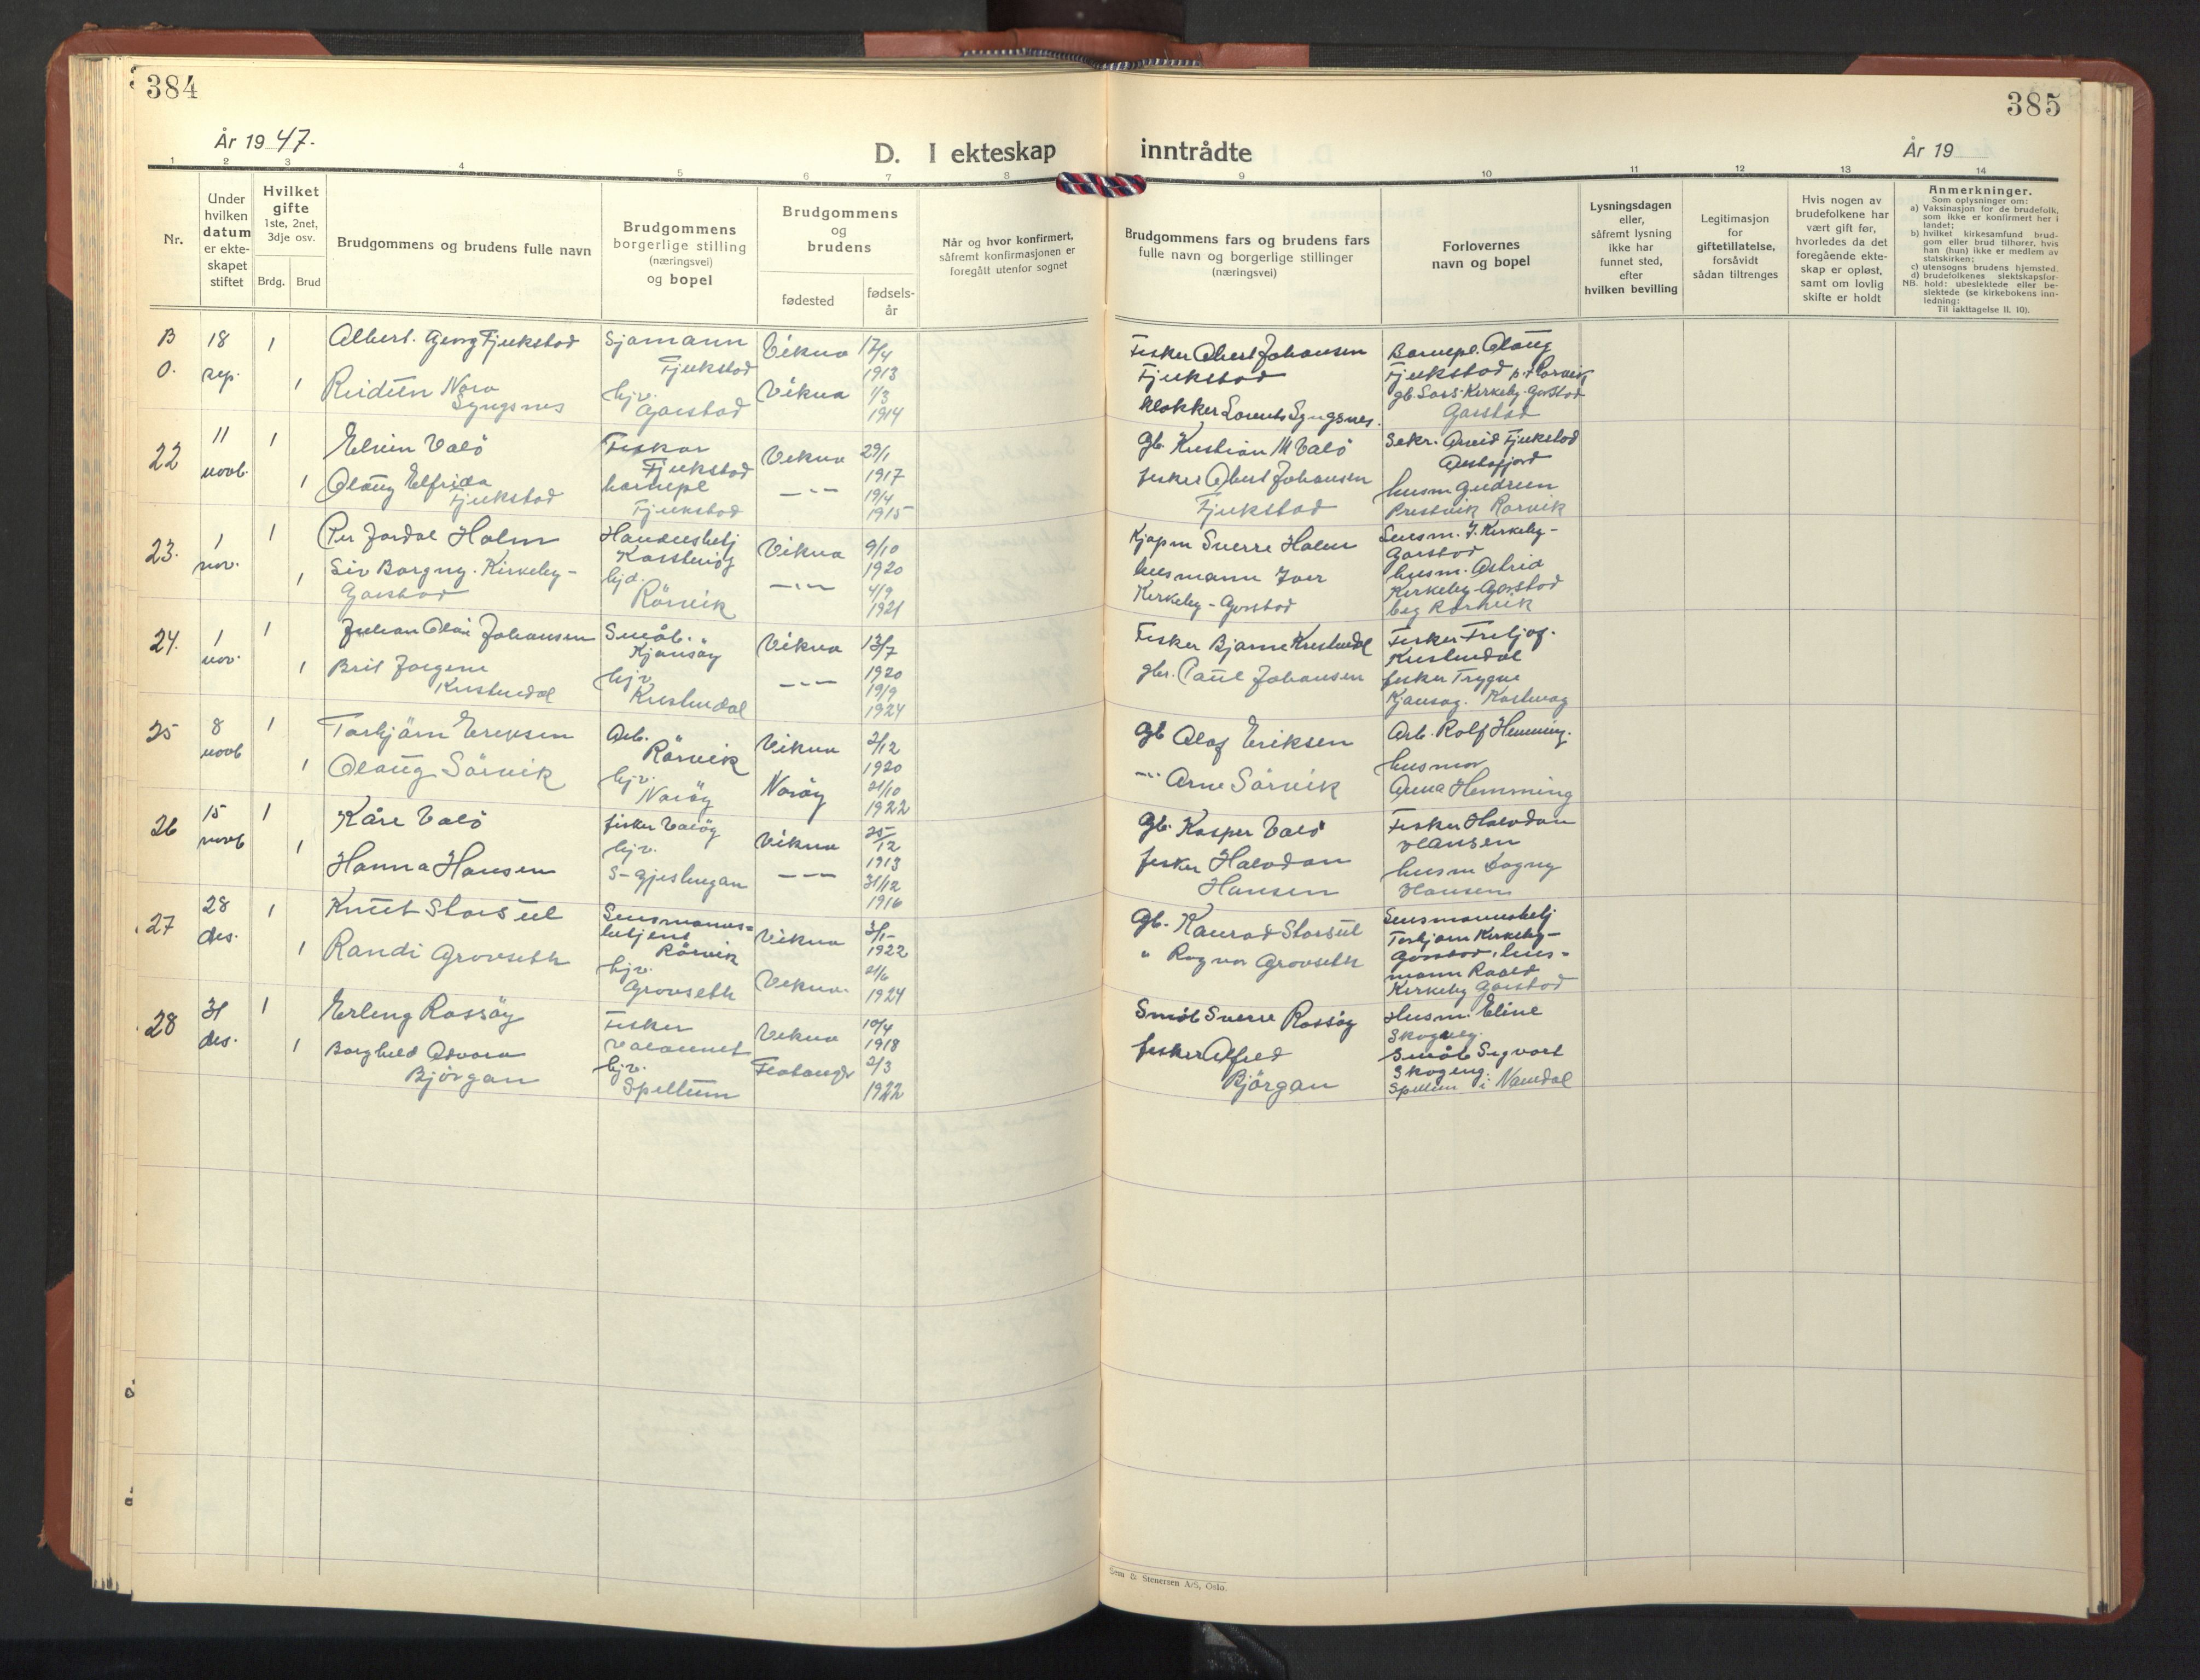 384
År 1947.
D. I ekteskap
1 2 3 4 5 6 7 8
Nr.
Under hvilken datum er ekte-skapet stiftet
Hvilket gifte
1ste, 2net, 3dje osv.
Brdg. Brud
Brudgommens og brudens fulle navn
Brudgommens borgerlige stilling (næringsvei) og bopel
Brudgommens og brudens
fødested
fødsels-år
Når og hvor konfirmert, såfremt konfirmasjonen er foregått utenfor sognet
B 18 1 Albert. Georg Fjukstad Sjømann Vikna 17/4
O. sep. Fjukstad 1913
1 Reidun Nora hjv. Vikna 1/3
Lyngsnes Garstad 1914
22 11 1 Elvin Valö Fisker Vikna 29/1
novb Fjukstad 1917
1 Olaug Elfrida barnepl —"— 19/4
Fjukstad Fjukstad 1915
23. 1 1 Per Jordal Holm Handelsbetj Vikna 9/10
nov. 1920
1 Siv Borgny. Kirkeby- hjd. —"— 4/9
Garstad Rörvik 1921
24. 1 1 Johan Olav Johansen Småb. Vikna 13/7
nov. Kjønsøy 1920
1 Brit Jorgene hjv. —"— 19/9
1924
25 8 1 Torbjörn Eriksen Arb. Vikna 2/12
novb Rörvik 1920
1 Olaug Sörvik hjv. Nærøy 21/10
Nærøy 1922
26 15 1 Kåre Valö fisker Valøy Vikna 25/12
novb 1913
1 Hanna Hansen hjv. —"— 31/12
S-Gjeslingan 1916
27 28 1 Knut Storsul Lensmanns=
des. betjent Rörvik Vikna 3/1 1922
1 Randi Grovseth hjv. Grovseth Vikna. 21/6 1924
28 31 1 Erling Rossöy Fisker Vikna 10/4
des. 1918
1 Borghild Advora hjv. Flatanger 2/3
Björgan Spillum 1922
385
inntrådte
År 19
9 10 11 12 13 14
Brudgommens fars og brudens fars fulle navn og borgerlige stillinger (næringsvei)
Forlovernes navn og bopel
Lysningsdagen eller, såfremt lysning ikke har funnet sted, efter hvilken bevilling
Legitimasjon for giftetillatelse, forsåvidt sådan tiltrenges
Hvis nogen av brudefolkene har vært gift før, hvorledes da det foregående ekte-skap er opløst, samt om lovlig skifte er holdt
Anmerkninger.
Som oplysninger om:
a) Vaksinasjon for de brudefolk, som ikke er konfirmert her i landet;
b) hvilket kirkesamfund brud-gom eller brud tilhører, hvis han (hun) ikke er medlem av statskirken;
c) utensogns brudens hjemsted.
d) brudefolkenes slektskapsfor-hold: ubeslektede eller be-slektede (se kirkebokens inn-ledning:
NB.
Til iakttagelse II. 10).
Fisker Albert Johansen Barnepl. Olaug
Fjukstad Fjukstad p.t. Rörvik
klokker Lorents Lyngsnes. gb. Lars Kirkeby-Garstad
Garstad
gb. Kristian M Valö Sekr. Arvid Fjukstad
Austafjord
fisker Albert Johansen husm Gudrun
Fjukstad Prestvik Rørvik
Kjøpm Sverre Holm Lensm. J. Kirkeby-
Garstad
lensmann Iver husm. Astrid
Kirkeby-Garstad Kirkeby-Garstad
beg Rørvik
Fisker Bjarne Fisker Fritjof.
gbr. Paul Johansen fisker Trygve
Kjønsøy.
Gb Olaf Eriksen Arb. Rolf Hemming.
—"— Arne Sörvik husmor
Anna Hemming
Gb. Kasper Valö Fisker Halvdan
Hansen
fisker Halvdan husm Dagny
Hansen Hansen
Gb. Konrad Storsul Lensmannsbetj
Torbjørn Kirkeby-
" Ragnar Grovseth Garstad, lens-
mann
Kirkeby Garstad
Småb Sverre Rossöy Husm. Eline
Skogeng.
fisker Alfred Småb Sigvart
Björgan Skogeng.
Spillum i Namdal
Sem & Stenersen A/S, Oslo.